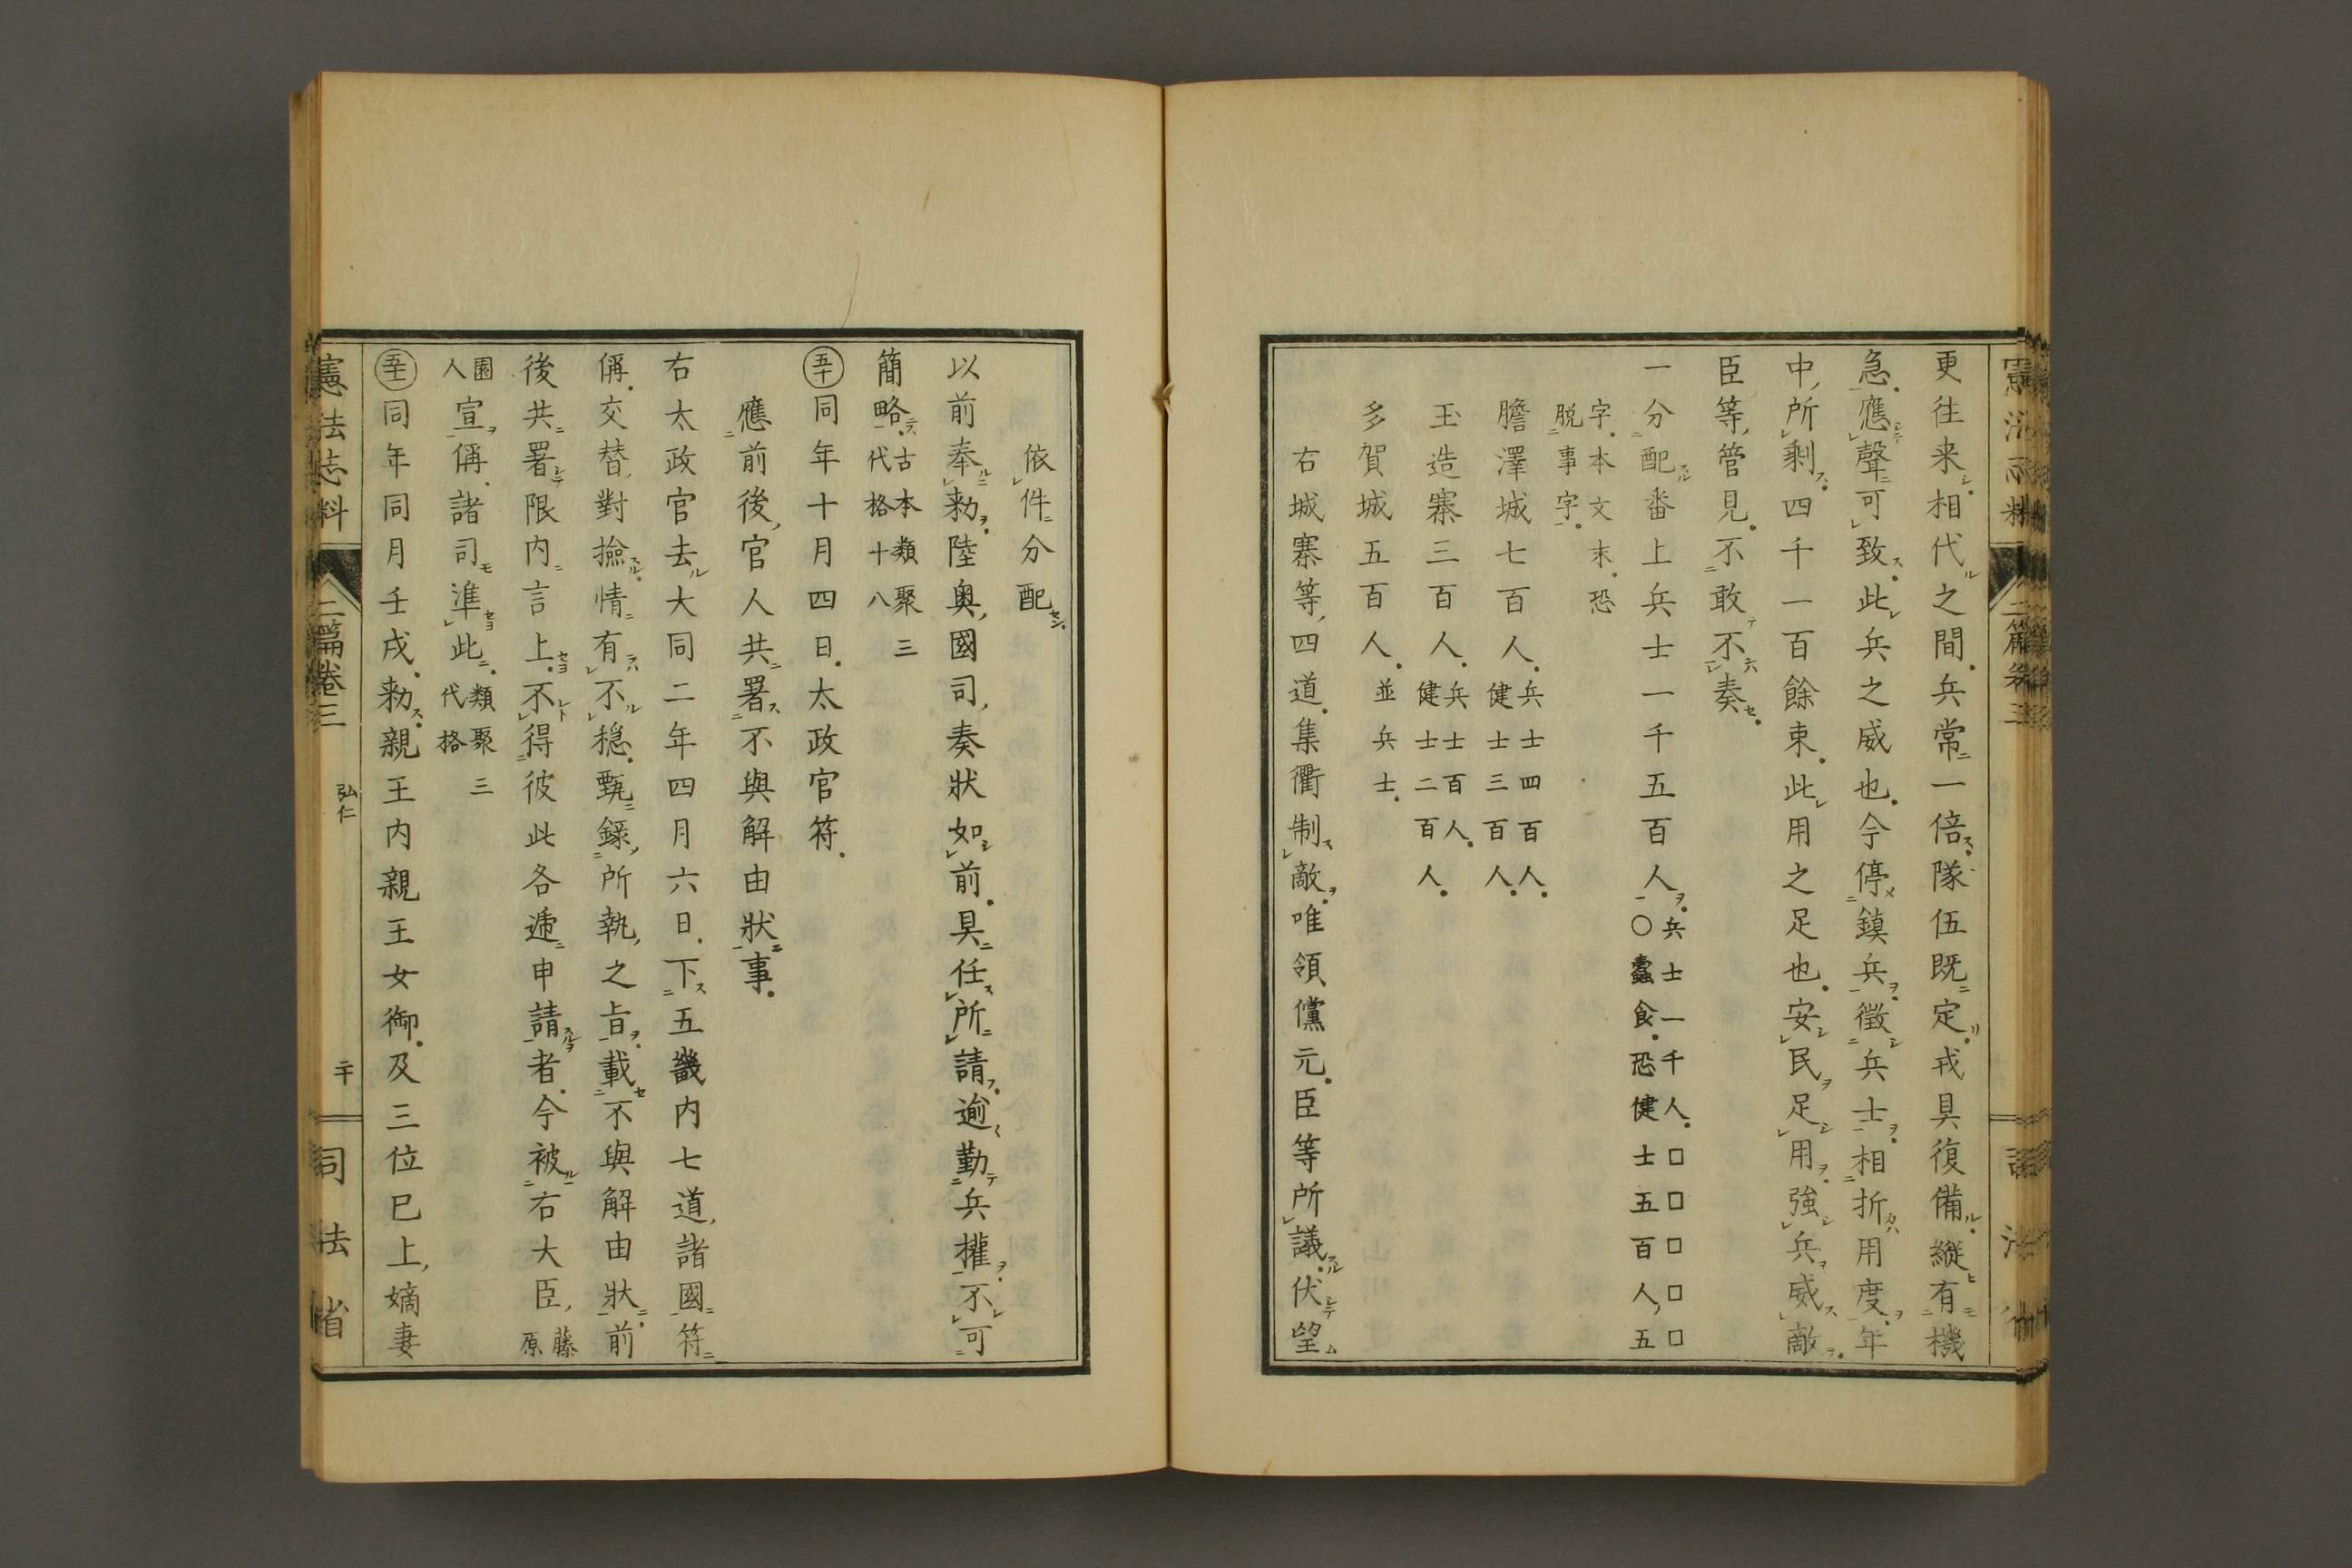 更往来相代之間兵常一倍隊伍既定戎具復備縱有機
急應聲可致此兵之威也今停鎮兵徴兵士相折用度年
中所剩四千一百餘束此用之足也安民足用強兵威敵
臣等管見不敢不奏
一分配番上兵士一千五百人兵士一千人□□□□□
○蠧食恐健士五百人五
字本文末恐
脱事字
膽澤城七百人兵士四百人
健士三百人
玉造寨三百人兵士百人
健士二百人
多賀城五百人並兵士
右城寨等四道集衢制敵唯領儻元臣等所議伏望
依件分配
以前奉勅陸奥國司奏狀如前具任所請逾勤兵權不可
簡略古本類聚三
代格十八
五十同年十月四日太政官符
應前後官人共署不與解由狀事
右太政官去大同二年四月六日下五畿内七道諸國符
偁交替對撿情有不穏甄録所執之旨載不與解由狀前
後共署限内言上不得彼此各遞申請者今被右大臣藤
原
園
人宣偁諸司準此類聚三
代格
同年同月壬戌勅親王内親王女御及三位已上嫡妻
憲法志料
二篇卷三
弘仁
二十
司法省